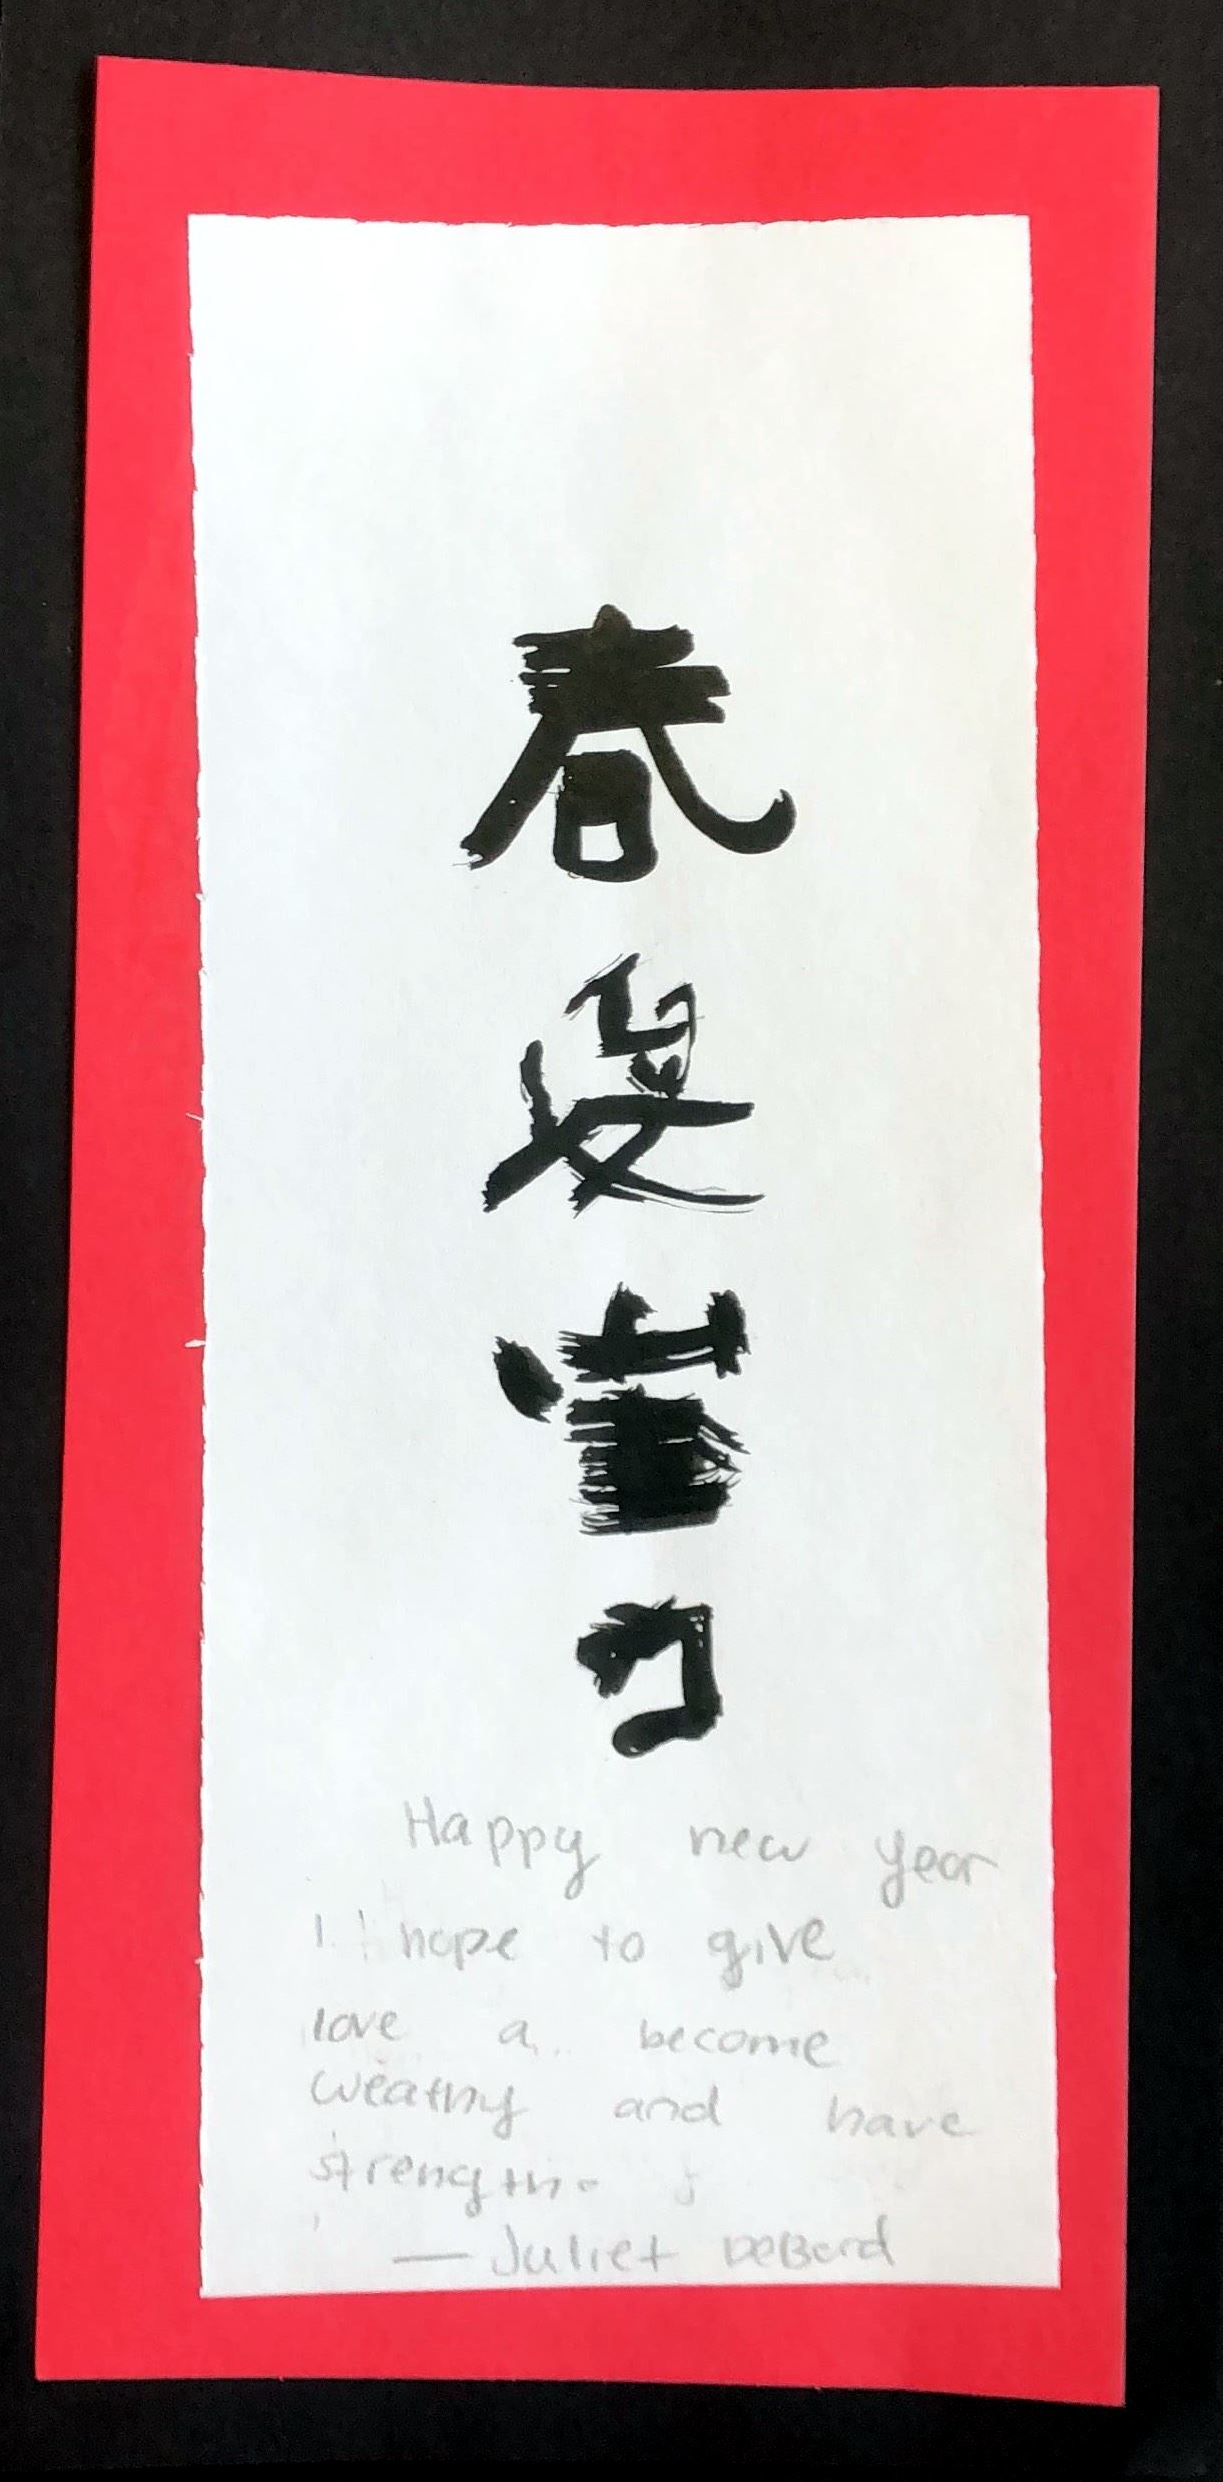 春
愛
富
力
Happy new year
I hope to give
love a become
weathy and have
strength.
— Juliet DeBord